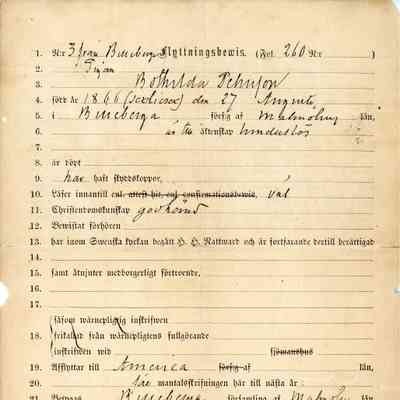 1. N:r 3 från Billeberga Flyttningsbewis. (Fol. 260 N:r )
2. Pigan
3. Bothilda Pehrsson
4. född år 1866 (sextiosex) den 27 Augusti
5. i Billeberga förs:g af Malmöhus län,
6. är till äktenskap hinderlös
7.
8. är döpt
9. har haft skyddskoppor,
10. Läser innantill enl. attest hit, enl. confirmationsbewis, väl
11. Christendomskunskap godkänd
12. Bewistat förhören
13. har inom Swenska kyrkan begått H. H. Nattward och är fortfarande dertill berättigad
14.
15. samt åtnjuter medborgerligt förtroende,
16.
17.
såsom wärnepligtig inskrifwen
18. frikallad från wärnepligtens fullgörande
inskrifwen wid sjömanshus
19. Afflyttar till America förs:g af län,
20. före mantalsskrifningen här till näste år:
21. Betygas Billeberga församling af Malmöhus län